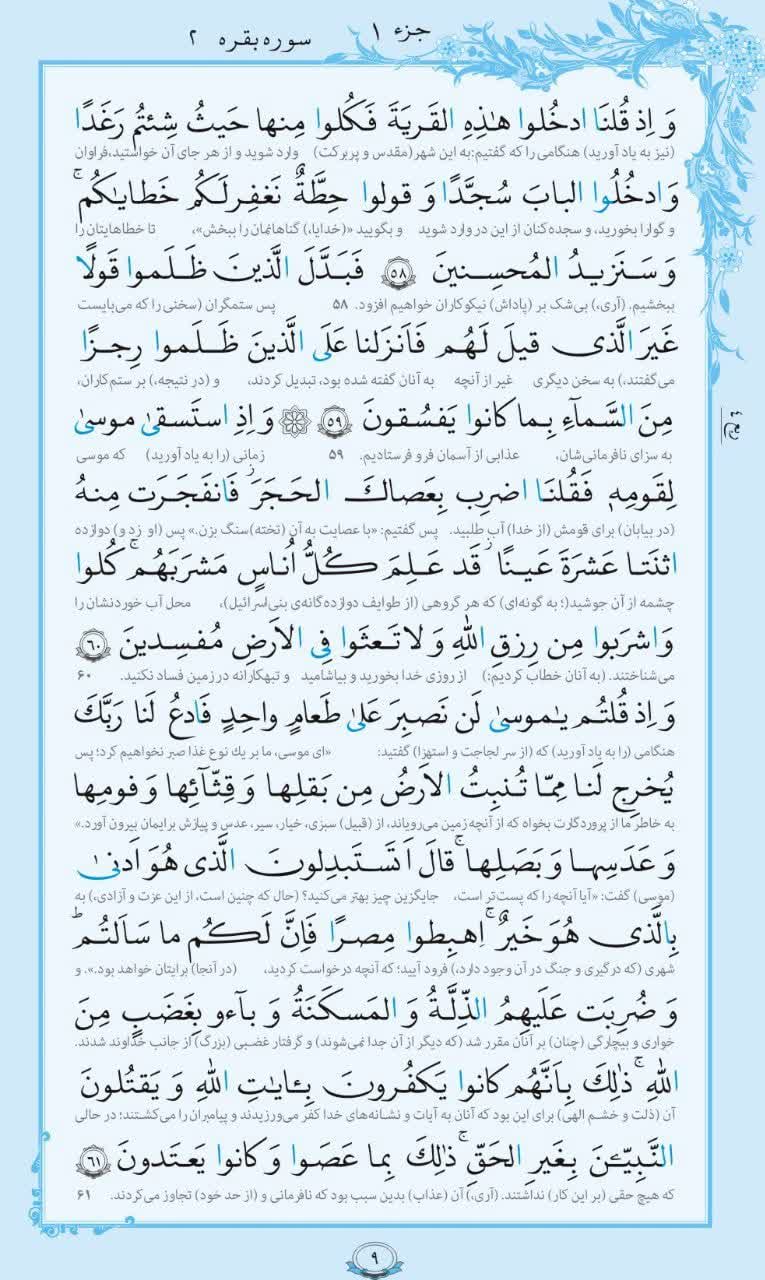 جزء ۱
سوره بقره ۲
وَ اِذ قُلنَا ادخُلوا هٰذِهِ القَریَةَ فَکُلوا مِنها حَیثُ شِئتُم رَغَدًا
(نیز به یاد آورید) هنگامی را که گفتیم: به این شهر (مقدس و پربرکت) وارد شوید و از هر جای آن خواستید، فراوان
وَادخُلُوا البابَ سُجَّدًا وَ قولوا حِطَّةٌ نَغفِرلَکُم خَطایاکُم ۚ
و گوارا بخورید، و سجده‌کنان از این در وارد شوید و بگویید «(خدایا،) گناهانمان را ببخش»، تا خطاهایتان را
وَ سَنَزیدُ المُحسِنینَ ﴿۵۸﴾ فَبَدَّلَ الَّذینَ ظَلَموا قَولًا
ببخشیم. (آری،) بی‌شک بر (پاداش) نیکوکاران خواهیم افزود. ۵۸ پس ستمگران (سخنی را که می‌بایست
غَیرَ الَّذی قیلَ لَهُم فَاَنزَلنا عَلَی الَّذینَ ظَلَموا رِجزًا
می‌گفتند،) به سخن دیگری غیر از آنچه به آنان گفته شده بود، تبدیل کردند، و (در نتیجه،) بر ستم‌کاران،
ربع ٤
مِنَ السَّمآءِ بِما کانوا یَفسُقونَ ﴿۵۹﴾ ۞ وَ اِذِ استَسقیٰ موسیٰ
به سزای نافرمانی‌شان، عذابی از آسمان فرو فرستادیم. ۵۹ زمانی (را به یاد آورید) که موسی
لِقَومِهٖ فَقُلنَا اضرِب بِعَصاكَ الحَجَرَ ۖ فَانفَجَرَت مِنهُ
(در بیابان) برای قومش (از خدا) آب طلبید. پس گفتیم: «با عصایت به آن (تخته) سنگ بزن.» پس (او زد و) دوازده
اثنَتا عَشرَةَ عَینًا ۖ قَد عَلِمَ کُلُّ اُناسٍ مَشرَبَهُم ۚ کُلوا
چشمه از آن جوشید (؛ به گونه‌ای) که هر گروهی (از طوایف دوازده‌گانه‌ی بنی‌اسرائیل)، محل آب خوردنشان را
وَاشرَبوا مِن رِزقِ اللّٰهِ وَ لاتَعثَوا فِی الاَرضِ مُفسِدینَ ﴿۶۰﴾
می‌شناختند. (به آنان خطاب کردیم:) از روزی خدا بخورید و بیاشامید و تبهکارانه در زمین فساد نکنید. ۶۰
وَ اِذ قُلتُم یٰموسیٰ لَن نَصبِرَ عَلیٰ طَعامٍ واحِدٍ فَادعُ لَنا رَبَّكَ
هنگامی (را به یاد آورید) که (از سر لجاجت و استهزا) گفتید: «ای موسی، ما بر یك نوع غذا صبر نخواهیم کرد؛ پس
یُخرِج لَنا مِمّا تُنبِتُ الاَرضُ مِن بَقلِها وَ قِثّآئِها وَ فومِها
به خاطر ما از پروردگارت بخواه که از آنچه زمین می‌رویاند، از (قبیل) سبزی، خیار، سیر، عدس و پیازش برایمان بیرون آورد.»
وَ عَدَسِها وَ بَصَلِها ۚ قالَ اَتَستَبدِلونَ الَّذی هُوَ اَدنیٰ
(موسی) گفت: «آیا آنچه را که پست‌تر است، جایگزین چیز بهتر می‌کنید؟ (حال که چنین است، از این عزت و آزادی،) به
بِالَّذی هُوَ خَیرٌ ۚ اِهبِطوا مِصرًا فَاِنَّ لَکُم ما سَاَلتُم ۗ
شهری (که درگیری و جنگ در آن وجود دارد،) فرود آیید؛ که آنچه درخواست کردید، (در آنجا) برایتان خواهد بود.» و
وَ ضُرِبَت عَلَیهِمُ الذِّلَّةُ وَ المَسکَنَةُ وَ بآءو بِغَضَبٍ مِنَ
خواری و بیچارگی (چنان) بر آنان مقرر شد (که دیگر از آن جدا نمی‌شوند) و گرفتار غضبی (بزرگ) از جانب خداوند شدند.
اللّٰهِ ۚ ذٰلِكَ بِاَنَّهُم کانوا یَکفُرونَ بِئایٰتِ اللّٰهِ وَ یَقتُلونَ
آن (ذلت و خشم الهی) برای این بود که آنان به آیات و نشانه‌های خدا کفر می‌ورزیدند و پیامبران را می‌کشتند؛ در حالی
النَّبِیّـٖنَ بِغَیرِ الحَقِّ ۚ ذٰلِكَ بِما عَصَوا وَ کانوا یَعتَدونَ ﴿۶۱﴾
که هیچ حقی (بر این کار) نداشتند. (آری،) آن (عذاب) بدین سبب بود که نافرمانی و (از حد خود) تجاوز می‌کردند. ۶۱
۹